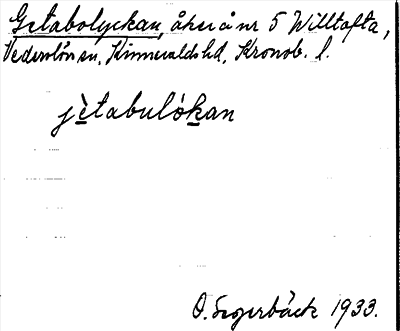 Getabolyckan, åker å nr 5 Willtofta,
Vederslöv sn, Kinnevalds hd, Kronob. l.
jètabulókan
O. Segerbäck 1933.